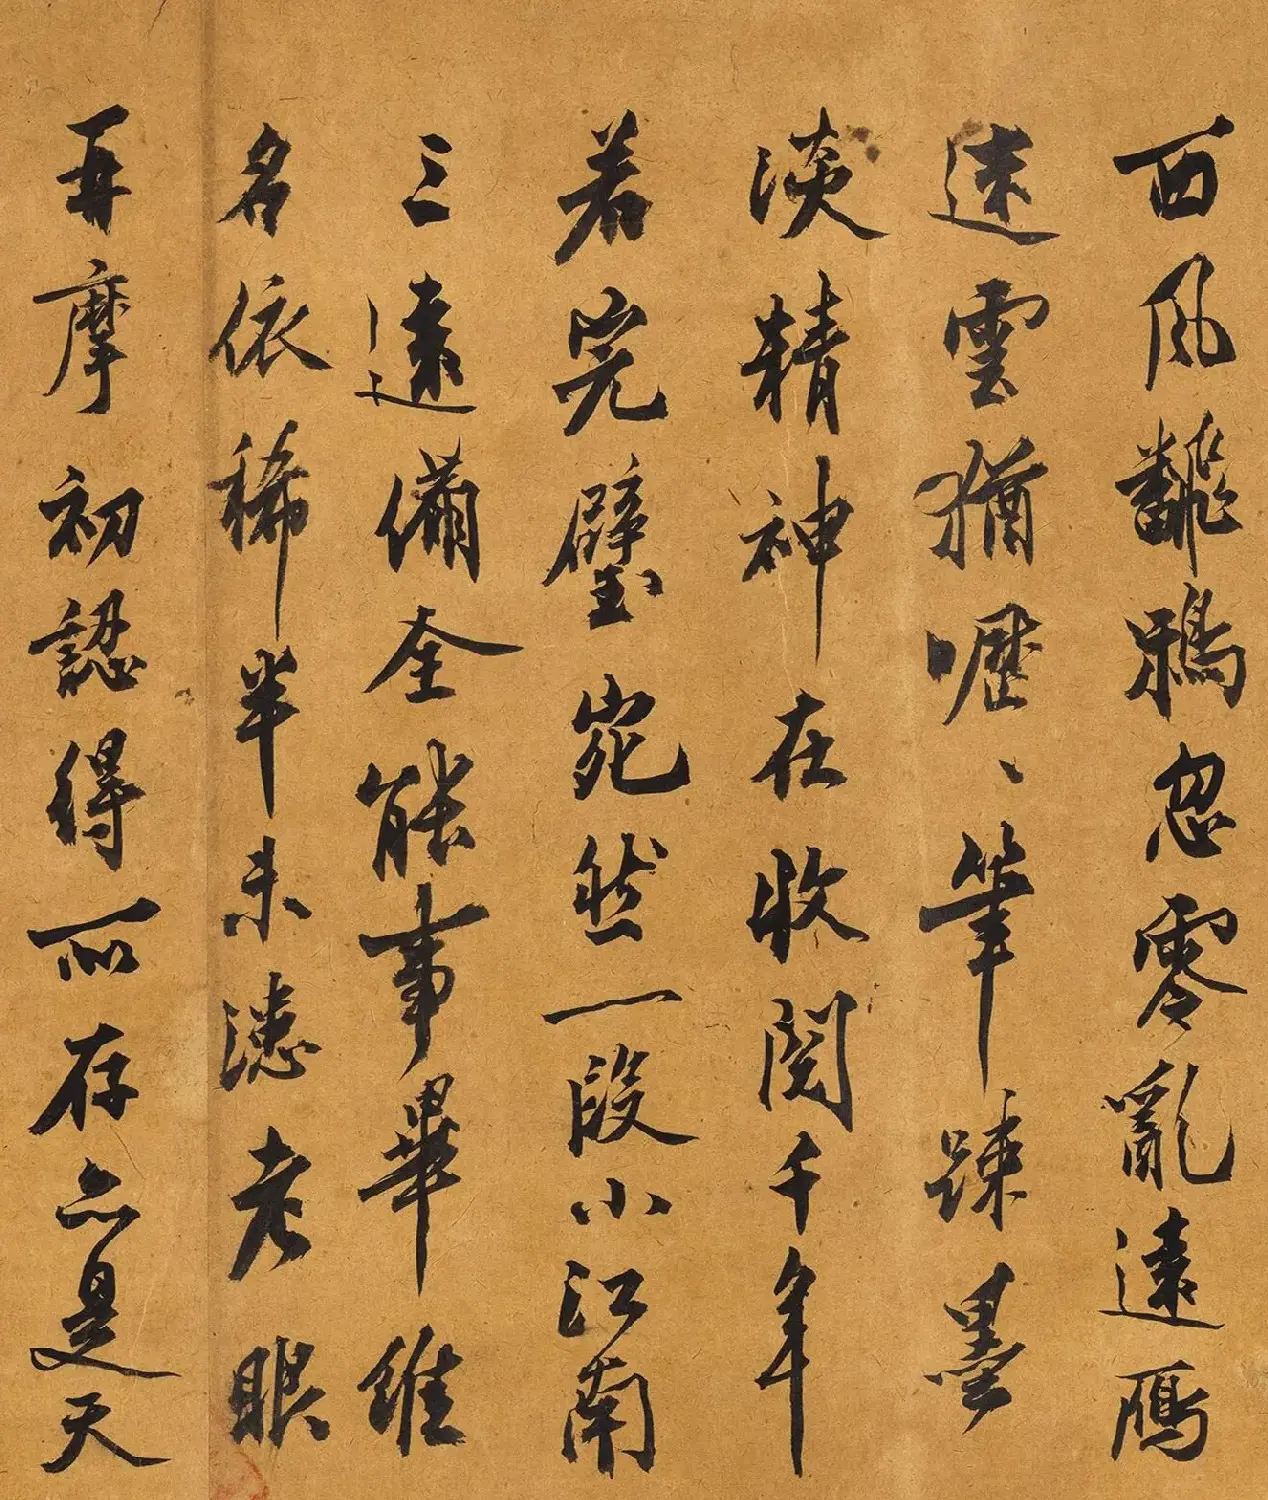 西風飜鴉忽零亂遠鴈
迷雲猶嚦、筆踈墨
淡精神在收閱千年
若完璧宛然一段小江南
三遠備全能事畢維
名依稀半未漶老眼
再摩初認得所存亦是天